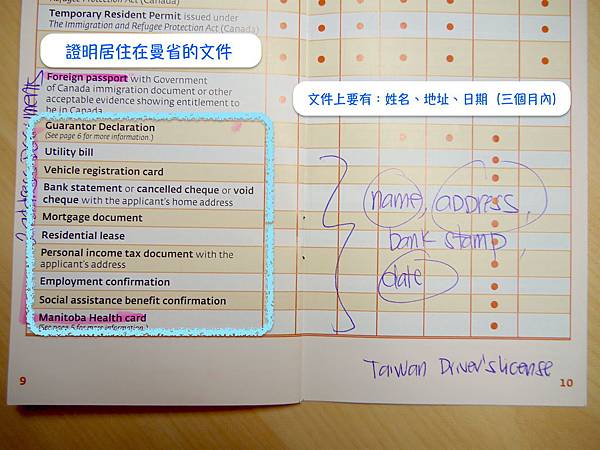 Refugee Protection Act (Canada)
Temporary Resident Permit issued under
The Immigration and Refugee Protection Act (Canada)
證明居住在曼省的文件
Foreign passport with Government
of Canada immigration document or other
acceptable evidence showing entitlement to
be in Canada
文件上要有：姓名、地址、日期（三個月內）
Guarantor Declaration
(See page 6 for more information.)
Utility bill
Vehicle registration card
Bank statement or cancelled cheque or void
cheque with the applicant's home address
Mortgage document
Residential lease
Personal income tax document with the
applicant's address
Employment confirmation
Social assistance benefit confirmation
Manitoba Health card
(See page 5 for more information.)
name, address,
bank stamp,
date
Taiwan Driver's license
9
10